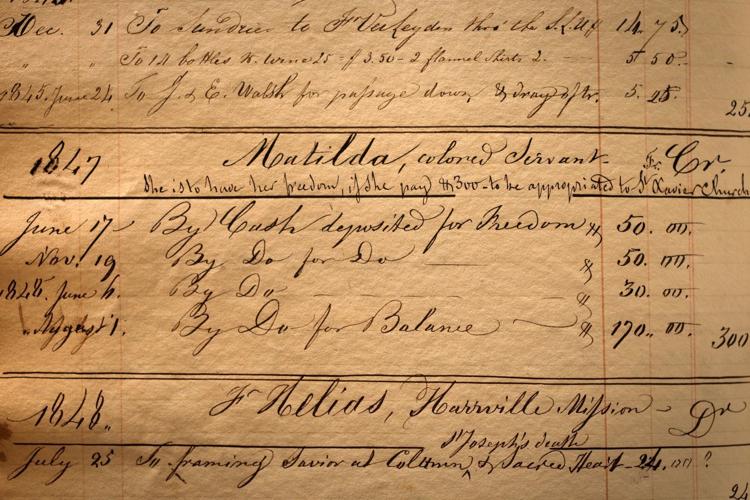 Dec. 31 To Sundries to F. Verheyden thro' the S.L.U. 14. 75.
" " To 14 bottles w. wine 25 - f 3.50 - 2 flannel shirts 2. 5 50.
1845. June 24 To J. & E. Walsh for passage down, & drayg of tr. 5. 25. 25
1847 Matilda, colored Servant Cr.
She is to have her freedom, if she pay $300 - to be appropriated to St Xavier Church
June 17 By Cash deposited for Freedom $ 50. 00.
Nov. 19 By Do for Do $ 50. 00.
1848. June 6. By Do " 30. 00.
" August 1. By Do for Balance $ 170.. 00. 300
1848. F. Helias, Harrville Mission - Dr
St Joseph's death
July 25 To framing Savior at Column, & Sacred Heart - 24. 00 ?
24